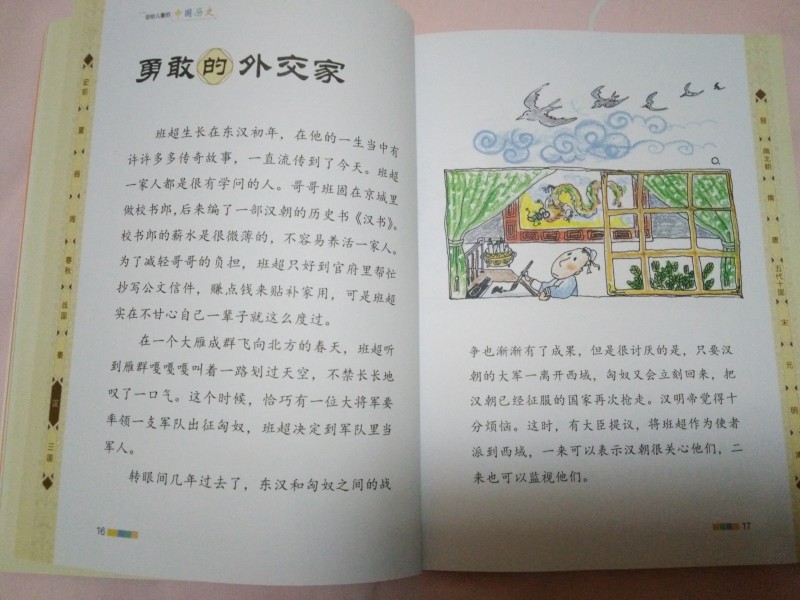 中国历史
勇敢的外交家
班超生长在东汉初年，在他的一生当中有
许许多多传奇故事，一直流传到了今天。班超
一家人都是很有学问的人。哥哥班固在京城里
做校书郎，后来编了一部汉朝的历史书《汉书》。
校书郎的薪水是很微薄的，不容易养活一家人。
为了减轻哥哥的负担，班超只好到官府里帮忙
抄写公文信件，赚点钱来贴补家用，可是班超
实在不甘心自己一辈子就这么度过。
在一个大雁成群飞向北方的春天，班超听
到雁群嘎嘎嘎叫着一路划过天空，不禁长长地
叹了一口气。这个时候，恰巧有一位大将军要
率领一支军队出征匈奴，班超决定到军队里当
军人。
转眼间几年过去了，东汉和匈奴之间的战
16
夏
商
春秋
战国
秦
汉
三国
争也渐渐有了成果，但是很讨厌的是，只要汉
朝的大军一离开西域，匈奴又会立刻回来，把
汉朝已经征服的国家再次抢走。汉明帝觉得十
分烦恼。这时，有大臣提议，将班超作为使者
派到西域，一来可以表示汉朝很关心他们，二
来也可以监视他们。
17
晋
南北朝
隋
唐
五代十国
宋
元
明